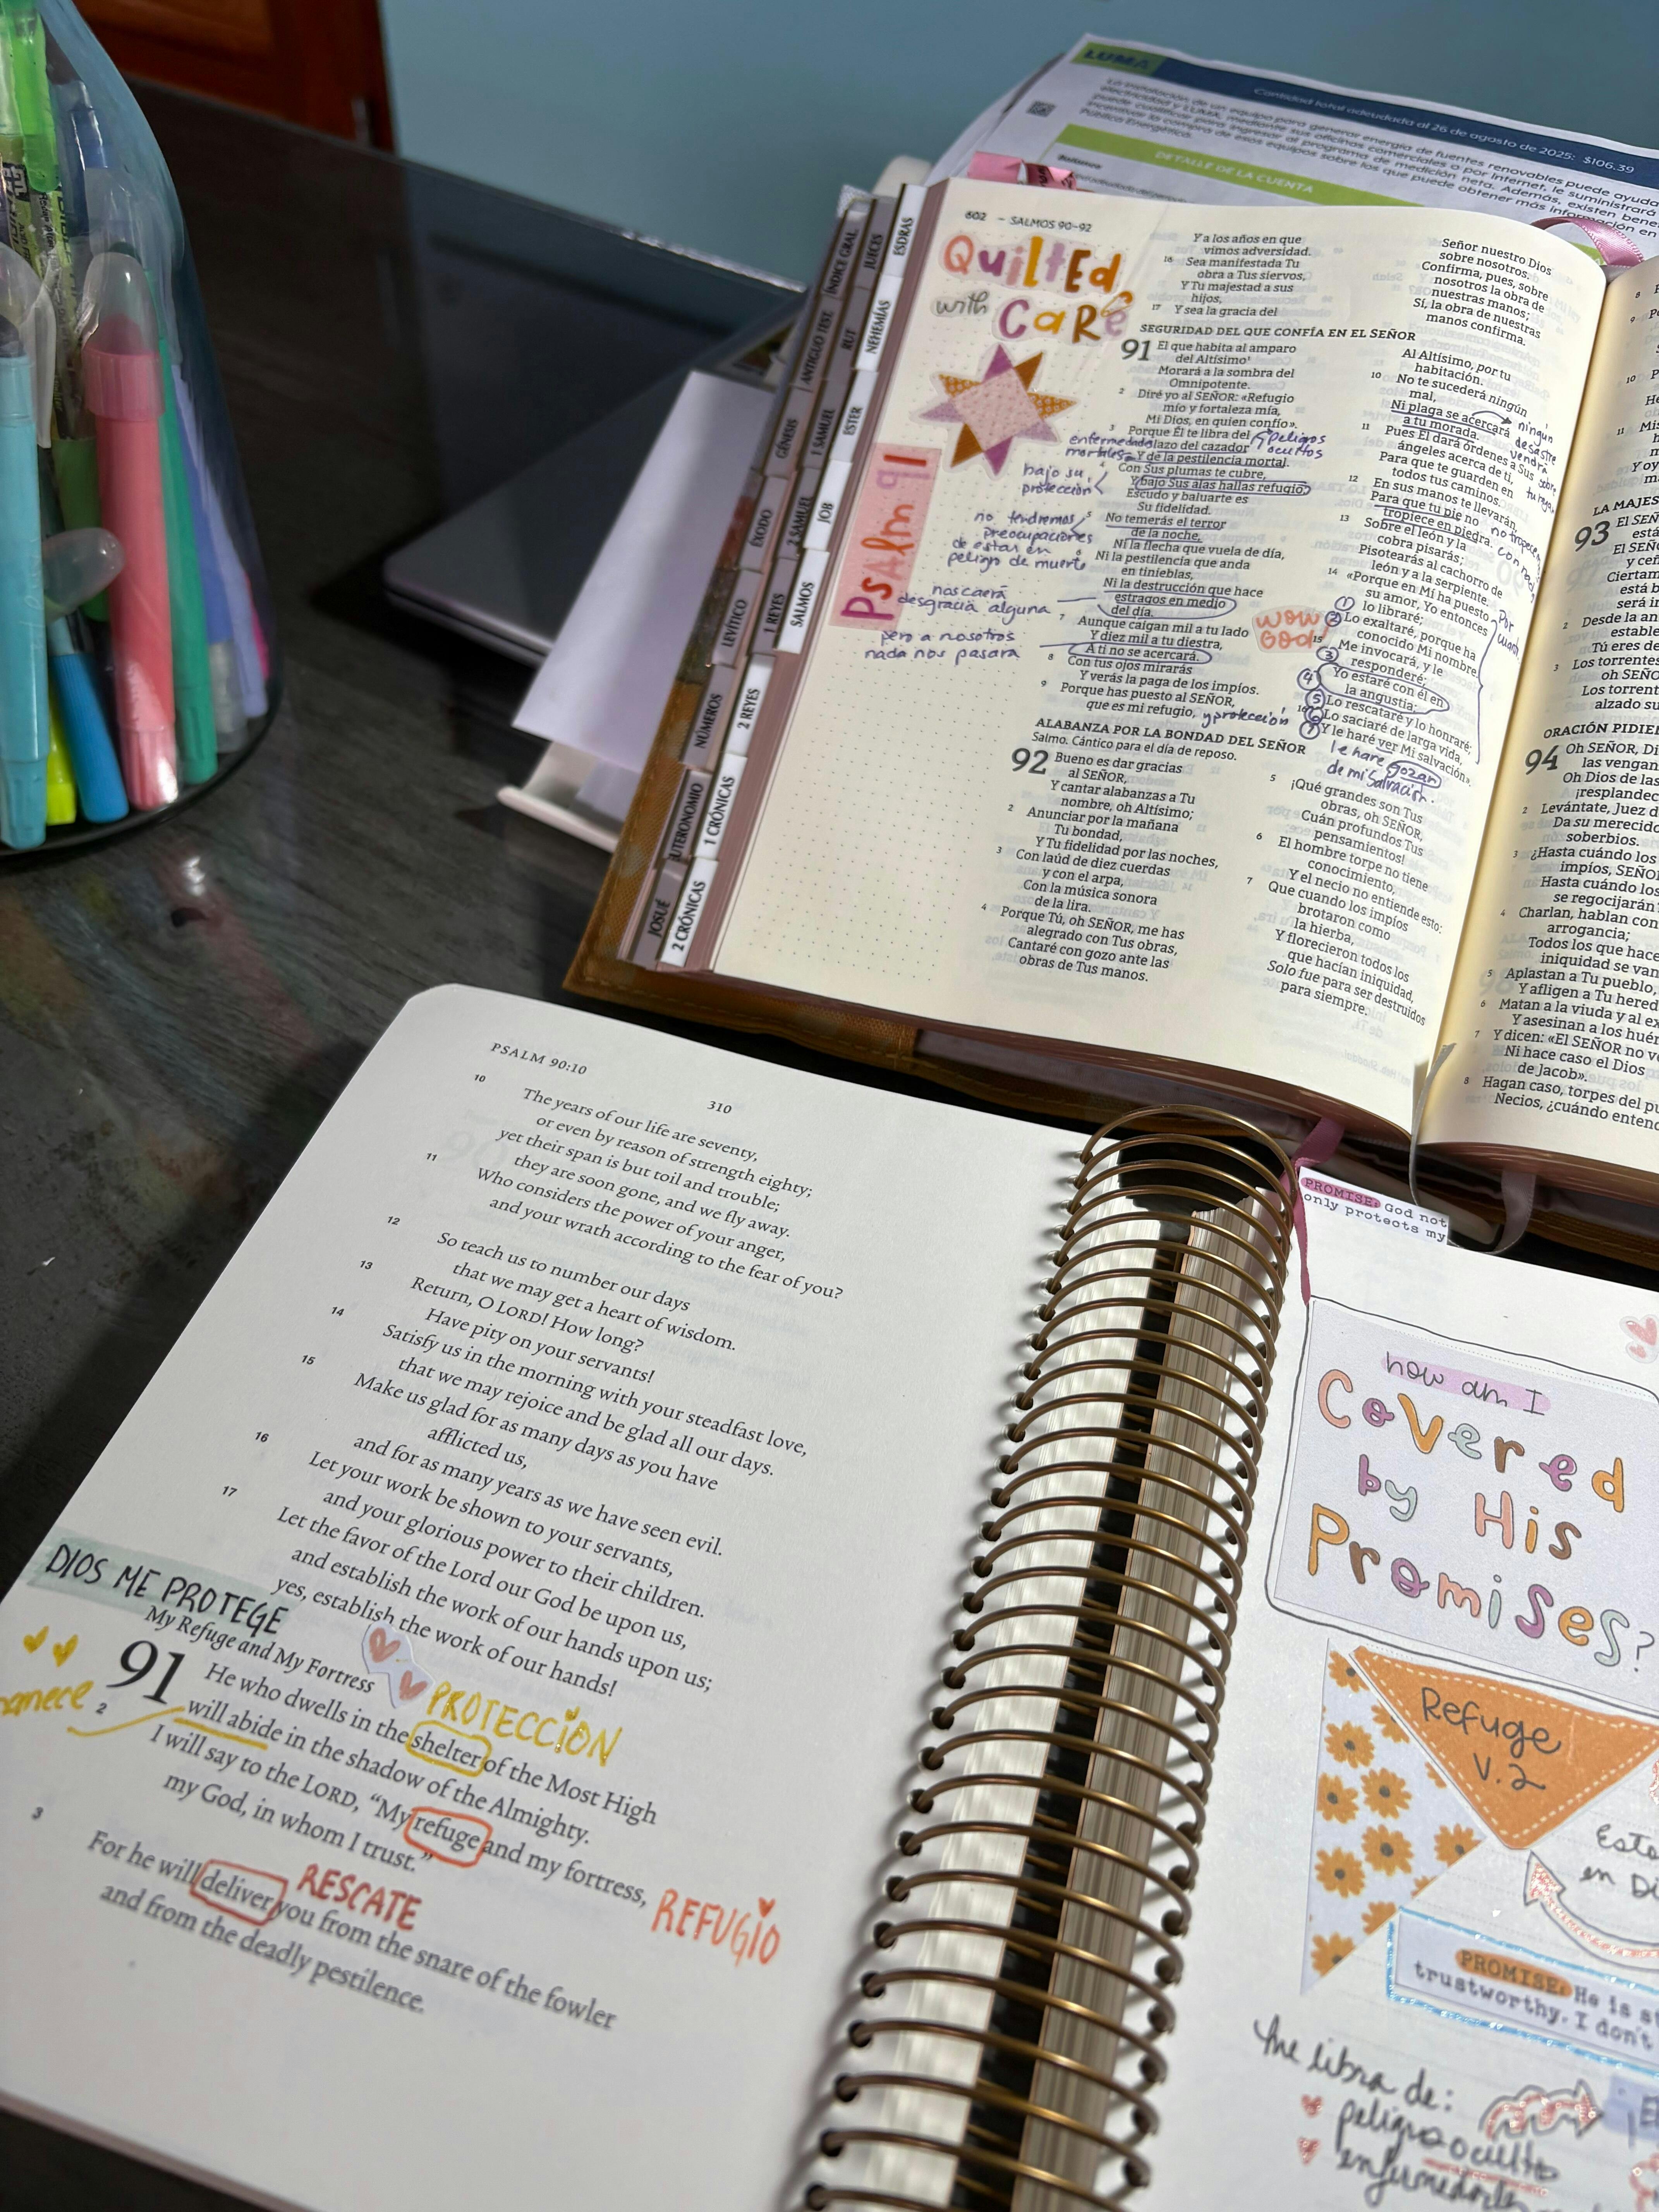 LUMA
Cantidad total adeudada al 26 de agosto de 2025: $106.39
La instalación de un equipo para generar energía de fuentes renovables puede ayuda
DETALLE DE LA CUENTA
Balance
ESDRAS
NEHEMÍAS
ESTER
JOB
SALMOS
2 REYES
1 CRÓNICAS
2 CRÓNICAS
JUECES
RUT
1 SAMUEL
2 SAMUEL
1 REYES
ÍNDICE GRAL.
ANTIGUO TEST.
GÉNESIS
ÉXODO
LEVÍTICO
NÚMEROS
UTERONOMIO
JOSUÉ
602 – SALMOS 90–92
QUiltEd
with
CaRe
Psalm 91
Y a los años en que
vimos adversidad.
16 Sea manifestada Tu
obra a Tus siervos,
Y Tu majestad a sus
hijos,
17 Y sea la gracia del
Señor nuestro Dios
sobre nosotros.
Confirma, pues, sobre
nosotros la obra de
nuestras manos;
Sí, la obra de nuestras
manos confirma.
SEGURIDAD DEL QUE CONFÍA EN EL SEÑOR
91 El que habita al amparo
del Altísimo
Morará a la sombra del
Omnipotente.
2 Diré yo al SEÑOR: «Refugio
mío y fortaleza mía,
Mi Dios, en quien confío».
3 Porque Él te libra del
lazo del cazador
Y de la pestilencia mortal.
4 Con Sus plumas te cubre,
Y bajo Sus alas hallas refugio;
Escudo y baluarte es
Su fidelidad.
5 No temerás el terror
de la noche,
Ni la flecha que vuela de día,
6 Ni la pestilencia que anda
en tinieblas,
Ni la destrucción que hace
estragos en medio
del día.
7 Aunque caigan mil a tu lado
Y diez mil a tu diestra,
A ti no se acercará.
8 Con tus ojos mirarás
Y verás la paga de los impíos.
9 Porque has puesto al SEÑOR,
que es mi refugio,
y protección
peligros
ocultos
enfermedades
mortales
bajo su
protección
no tendremos
preocupaciones
de estar en
peligro de muerte
nos caerá
desgracia alguna
pero a nosotros
nada nos pasará
Al Altísimo, por tu
habitación.
10 No te sucederá ningún
mal,
Ni plaga se acercará
a tu morada.
11 Pues Él dará órdenes a Sus
ángeles acerca de ti,
Para que te guarden en
todos tus caminos.
12 En sus manos te llevarán,
Para que tu pie no
tropiece en piedra.
13 Sobre el león y la
cobra pisarás;
Pisotearás al cachorro de
león y a la serpiente.
14 «Porque en Mí ha puesto
su amor, Yo entonces
1 lo libraré;
2 Lo exaltaré, porque ha
conocido Mi nombre.
15 Me invocará, y le
3 responderé;
4 Yo estaré con él en
la angustia;
5 Lo rescataré y lo honraré;
16 6 Lo saciaré de larga vida,
7 Y le haré ver Mi salvación».
le haré gozar
de mi salvación.
ningún
desastre
vendrá
sobre
tu hogar
no tropiece
con
Por
WOW
GOD!
ALABANZA POR LA BONDAD DEL SEÑOR
Salmo. Cántico para el día de reposo.
92 Bueno es dar gracias
al SEÑOR,
Y cantar alabanzas a Tu
nombre, oh Altísimo;
2 Anunciar por la mañana
Tu bondad,
Y Tu fidelidad por las noches,
3 Con laúd de diez cuerdas
y con el arpa,
Con la música sonora
de la lira.
4 Porque Tú, oh SEÑOR, me has
alegrado con Tus obras,
Cantaré con gozo ante las
obras de Tus manos.
5 ¡Qué grandes son Tus
obras, oh SEÑOR,
Cuán profundos Tus
pensamientos!
6 El hombre torpe no tiene
conocimiento,
Y el necio no entiende esto:
7 Que cuando los impíos
brotaron como
la hierba,
Y florecieron todos los
que hacían iniquidad,
Solo fue para ser destruidos
para siempre.
LA MAJES
93 El SEÑ
está
El SEÑO
y ceñ
Ciertam
está b
será in
2 Desde la an
estable
Tú eres de
3 Los torrentes
oh SEÑO
Los torrent
alzado su
ORACIÓN PIDIE
94 Oh SEÑOR, Di
las vengan
Oh Dios de las
¡resplandec
2 Levántate, Juez d
Da su merecido
soberbios.
3 ¿Hasta cuándo los
impíos, SEÑO
Hasta cuándo los
se regocijarán
4 Charlan, hablan con
arrogancia;
Todos los que hace
iniquidad se van
5 Aplastan a Tu pueblo,
Y afligen a Tu hered
6 Matan a la viuda y al ex
Y asesinan a los huér
7 Y dicen: «El SEÑOR no v
Ni hace caso el Dios
de Jacob».
8 Hagan caso, torpes del pu
Necios, ¿cuándo entend
PSALM 90:10
310
10 The years of our life are seventy,
or even by reason of strength eighty;
yet their span is but toil and trouble;
they are soon gone, and we fly away.
11 Who considers the power of your anger,
and your wrath according to the fear of you?
12 So teach us to number our days
that we may get a heart of wisdom.
13 Return, O LORD! How long?
Have pity on your servants!
14 Satisfy us in the morning with your steadfast love,
that we may rejoice and be glad all our days.
15 Make us glad for as many days as you have
afflicted us,
and for as many years as we have seen evil.
16 Let your work be shown to your servants,
and your glorious power to their children.
17 Let the favor of the Lord our God be upon us,
and establish the work of our hands upon us;
yes, establish the work of our hands!
DIOS ME PROTEGE
My Refuge and My Fortress
PROTECCIÓN
91 He who dwells in the shelter of the Most High
will abide in the shadow of the Almighty.
2 I will say to the LORD, “My refuge and my fortress,
my God, in whom I trust.”
REFUGIO
RESCATE
3 For he will deliver you from the snare of the fowler
and from the deadly pestilence.
PROMISE: God not
only protects my
how am I
Covered
by His
Promises?
Refuge
v.2
en Di
PROMISE: He is st
trustworthy. I don't
Me libra de:
peligro oculto